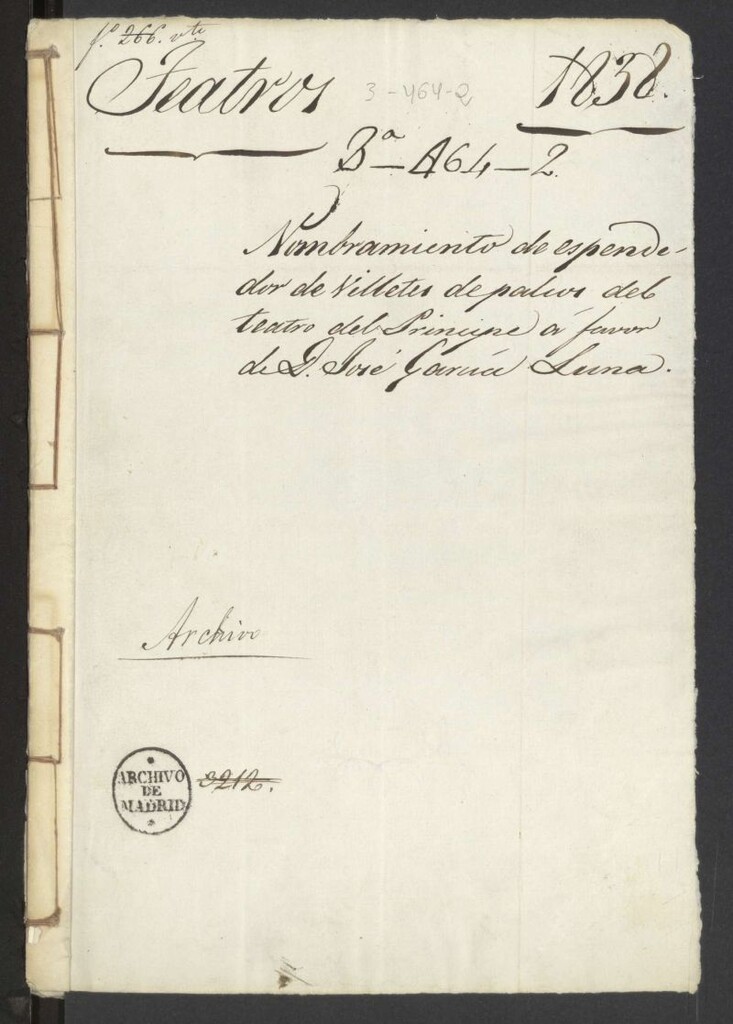 fº 266. vto
Teatros 3-464-2 1838.
3ª-464-2.
Nombramiento de espende-
dor de Villetes de palcos del
teatro del Principe á favor
de D. José García Luna.
Archivo
ARCHIVO
DE
MADRID
3212.